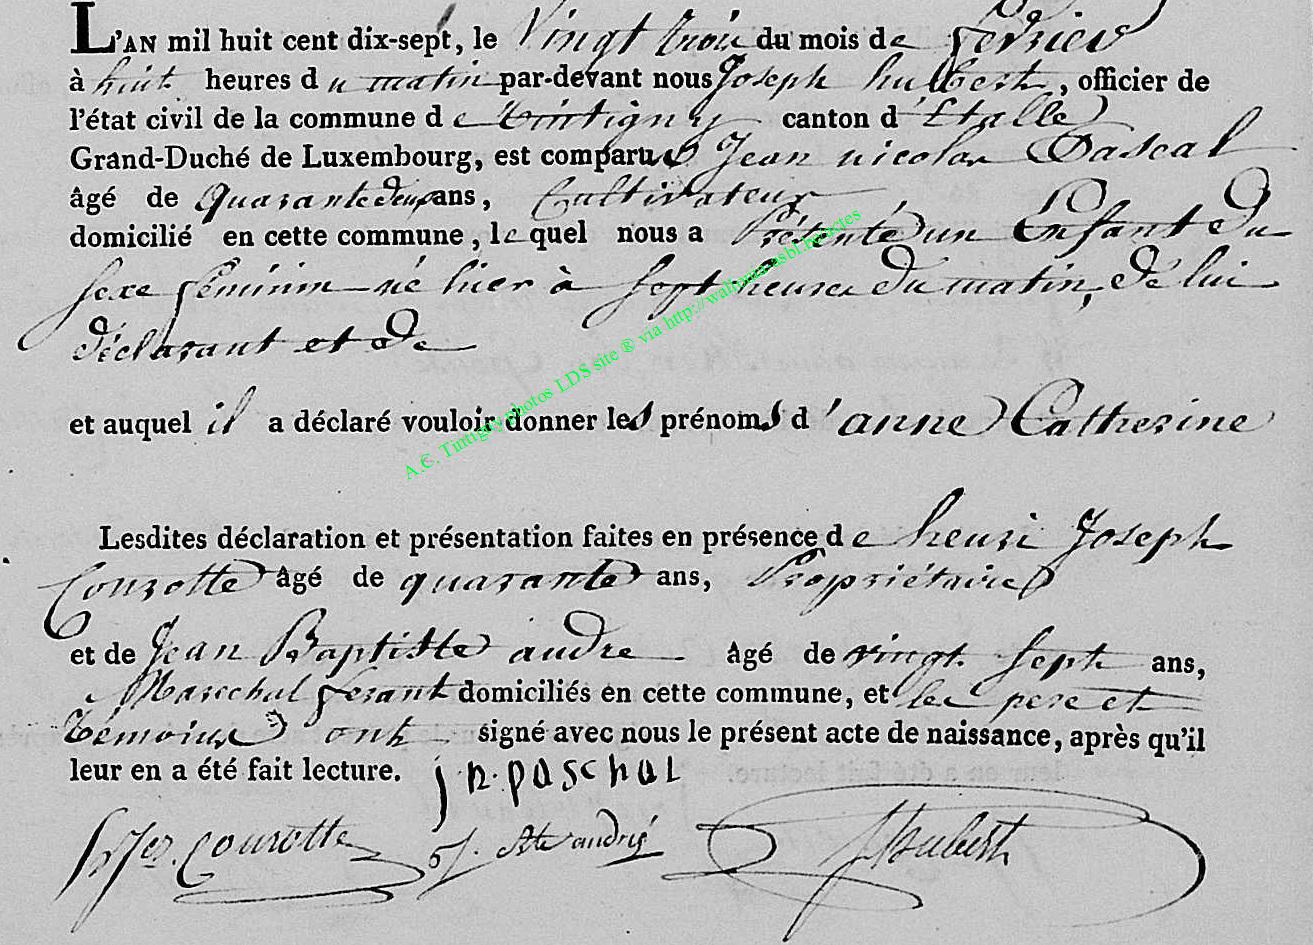 L'AN mil huit cent dix-sept, le Vingt trois du mois de fevrier
à huit heures du matin par-devant nous Joseph hulbert, officier de
l'état civil de la commune de tintigny canton d'Etalle
Grand-Duché de Luxembourg, est comparu Jean nicolas Pascal
âgé de quarante deux ans, Cultivateur
domicilié en cette commune, le quel nous a Présenté un Enfant Du
sexe féminin né hier à sept heures du matin, de lui
déclarant et de
et auquel il a déclaré vouloir donner les prénoms d'anne Catherine
Lesdites déclaration et présentation faites en présence de henri Joseph
Courotte âgé de quarante ans, Propriétaire
et de Jean Baptiste andre âgé de vingt sept ans,
Marechal ferant domiciliés en cette commune, et les pere et
témoins ont signé avec nous le présent acte de naissance, après qu'il
leur en a été fait lecture. j. n. paschal
Courotte andrié J hubert
A.C. Tintigny photos LDS site ® via http://wallonia.asbl.be/actes